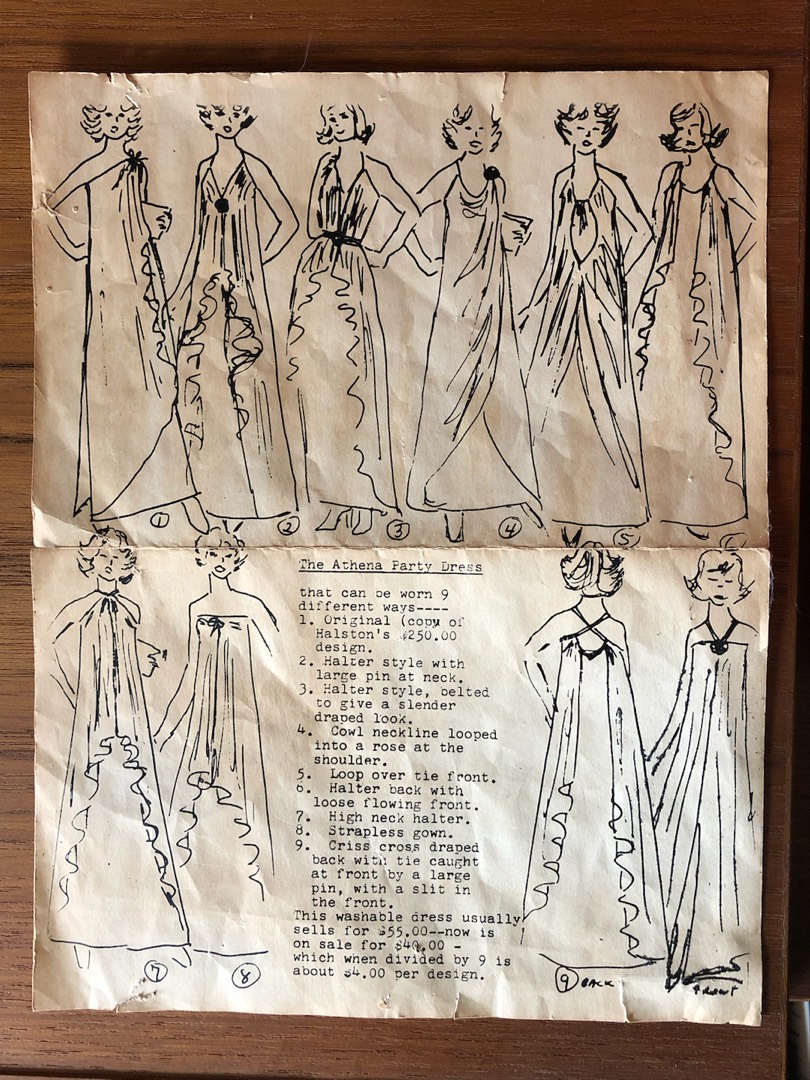 1
2
3
4
5
6
The Athena Party Dress
that can be worn 9
different ways----
1. Original (copy of
Halston's $250.00
design.
2. Halter style with
large pin at neck.
3. Halter style, belted
to give a slender
draped look.
4. Cowl neckline looped
into a rose at the
shoulder.
5. Loop over tie front.
6. Halter back with
loose flowing front.
7. High neck halter.
8. Strapless gown.
9. Criss cross draped
back with tie caught
at front by a large
pin, with a slit in
the front.
This washable dress usually
sells for $55.00--now is
on sale for $40.00 -
which when divided by 9 is
about $4.00 per design.
7
8
9 BACK
FRONT